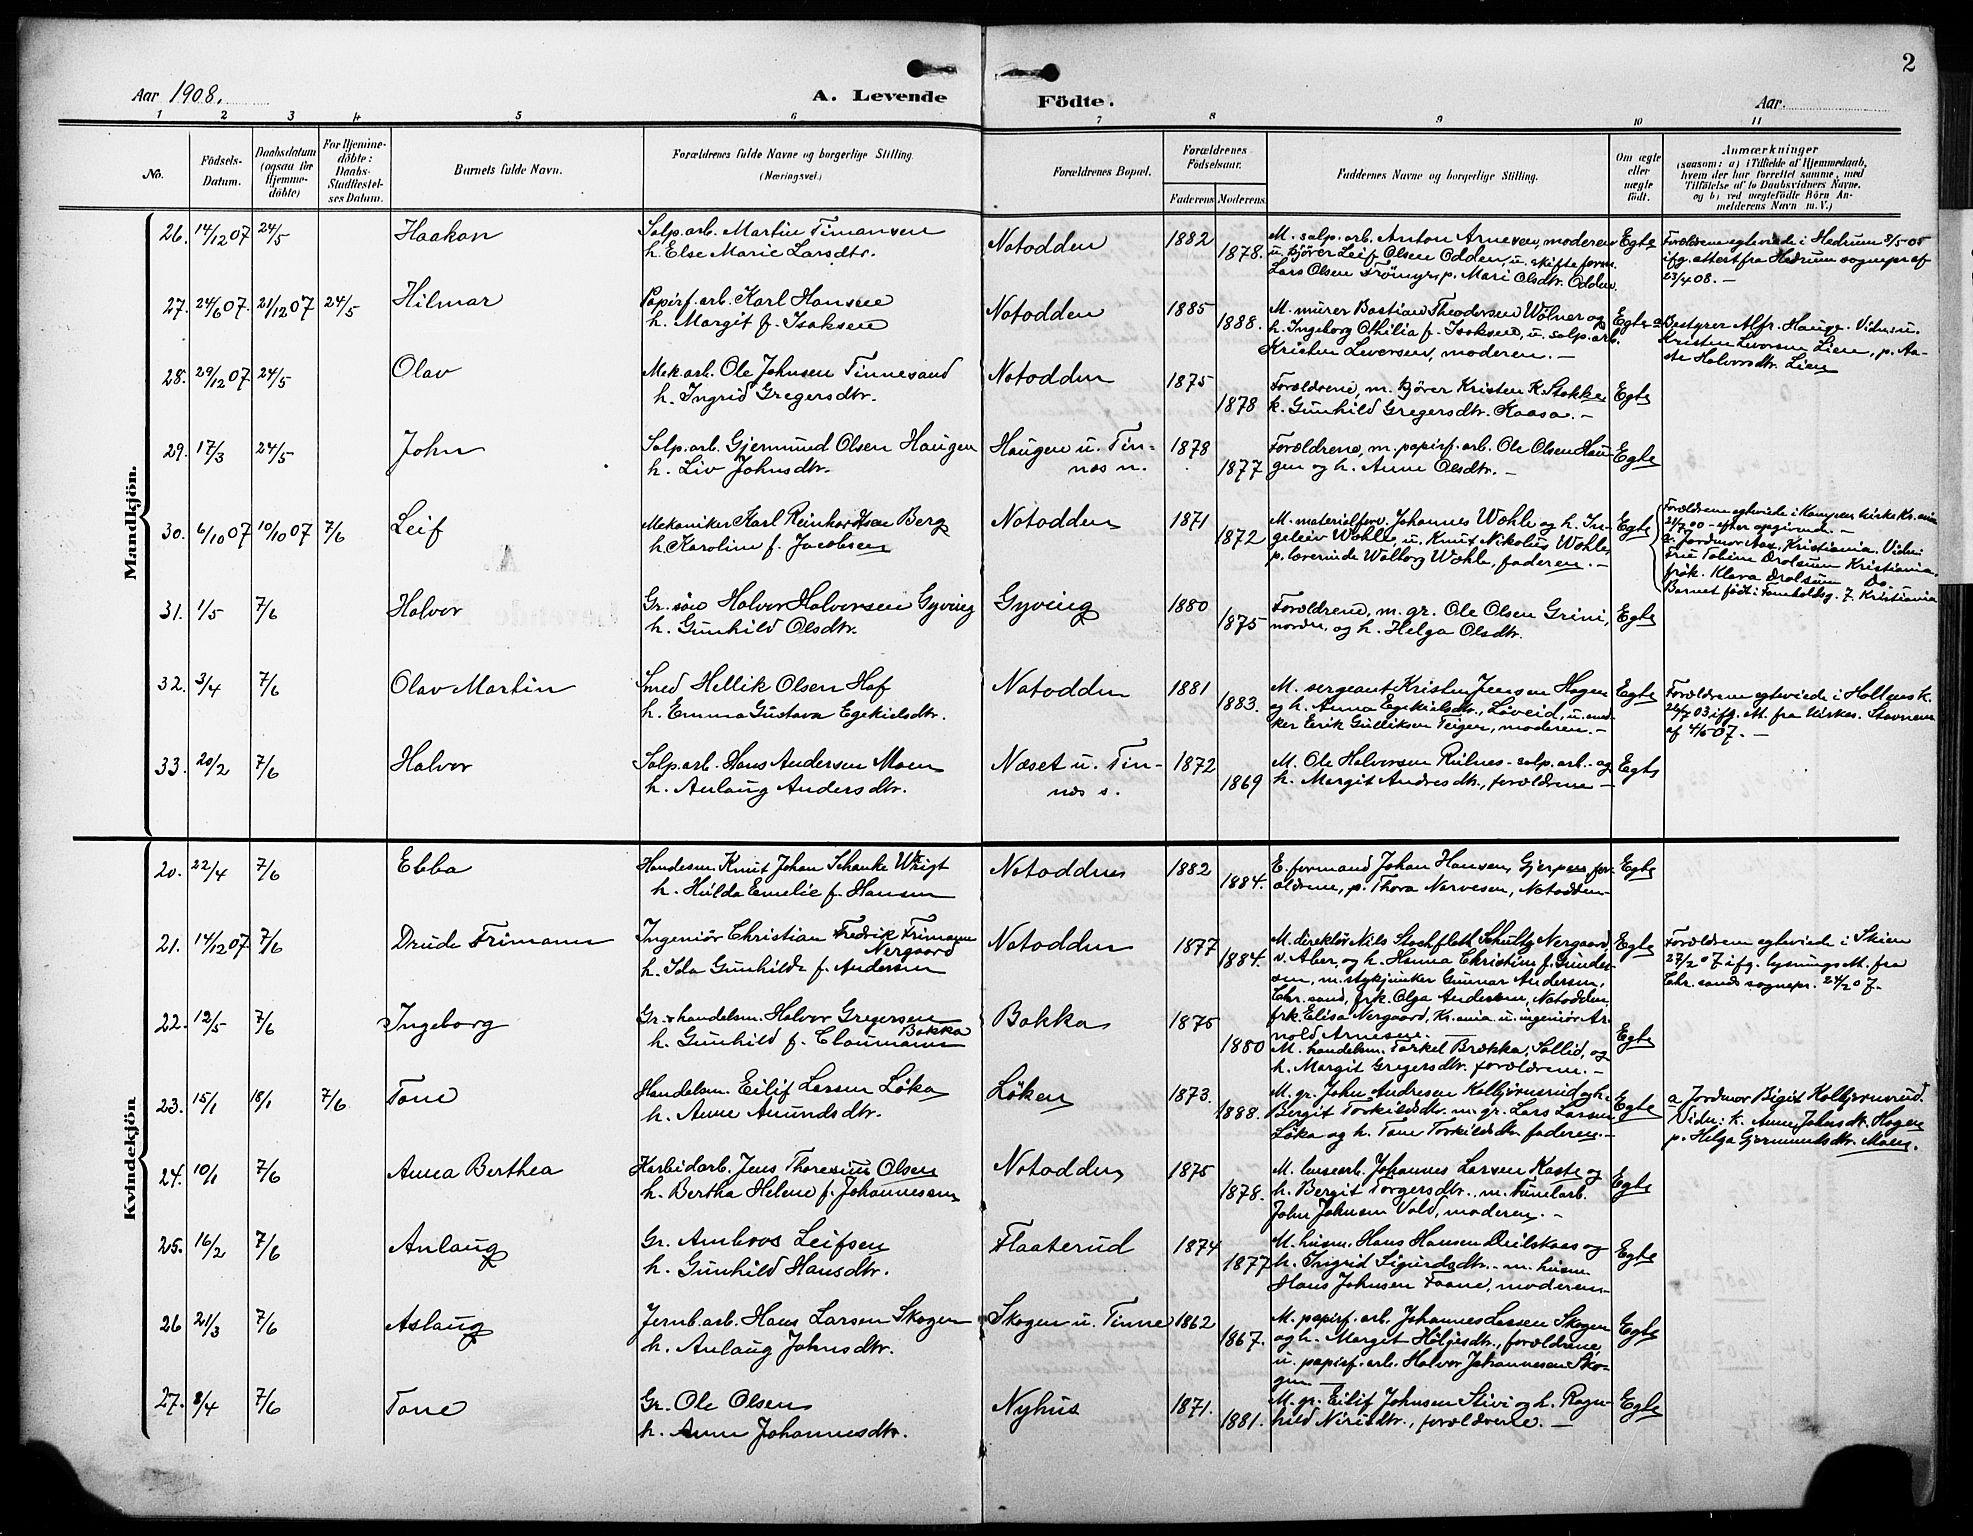 2
Aar 1908.
A. Levende
Födte.
Aar.
1 2 3 4 5 6 7 8 9 10 11
No.
Födsels-
Datum.
Daabsdatum
(ogsaa for
Hjemme-
döbte)
For Hjemme-
döbte:
Daabs-
Stadfæstel-
ses Datum.
Barnets fulde Navn.
Forældrenes fulde Navne og borgerlige Stilling.
(Næringsvei.)
Forældrenes Bopæl.
Forældrenes
Födselsaar.
Faderens. Moderens.
Faddernes Navne og borgerlige Stilling.
Om ægte
eller
uægte
födt.
Anmærkninger
(saasom: a) i Tilfælde af Hjemmedaab,
hvem der har forrettet samme, med
Tilföielse af to Daabsvidners Navne,
og b) ved uægtefödte Börn An-
melderens Navn m. V.)
Mandkjön.
26. 14/12 07 24/5 Haakon
Salp. arb. Martin Timansen
h. Else Marie Larsdtr.
Notodden 1882 1878.
M. salp. arb. Anton Arnesen, moderen
u. kjörer Leif Olsen Odden, u. skifteform.
Lars Olsen Trömyr, p. Mari Olsdtr. Odden.
Egte
Forældrene egteviede i Hedrum 8/5 05
ifg. attest fra Hedrum sognepr. af
23/4 08. –
27. 24/6 07. 21/12 07 24/5 Hilmar
Papirf. arb. Karl Hansen
h. Margit f. Isaksen
Notodden 1885 1888.
M. murer Bastian Theodorsen Wölner og
h. Ingeborg Othilia f. Isaksen, u. salp. arb.
Kristen Leversen, moderen. –
Egte
a Bestyrer Alfr. Hauge. Vidn: u.
Kristen Leversen Lien, p. Aa-
se Halvorsdtr. Lien
28. 29/12 07 24/5 Olav
Mek. arb. Ole Johnsen Tinnesand
h. Ingrid Gregersdtr.
Notodden 1875 1878
Forældrene, m. kjörer Kristen K. Stokke
k. Gunhild Gregersdtr. Kaasa. –
Egte
29. 17/3 24/5 John
Salp. arb. Gjermund Olsen Haugen
h. Liv Johnsdtr.
Haugen u. Tin-
næs n.
1878 1877
Forældrene, m. papirf. arb. Ole Olsen Hau-
gen og h. Anne Olsdtr. –
Egte
30. 6/10 07 10/10 07 7/6 Leif
Mekaniker Karl Reinhardtsen Berg
h. Karoline f. Jacobsen
Notodden 1871 1872
M. materialforv. Johannes Wohle og h. In-
geleiv Wohle, u. Knut Nikolus Wohle,
p. lærerinde Walborg Wohle, faderen. –
Egte
Forældrene egteviede i Kampens kirke Kr.ania
21/7 00 – efter opgivende. –
a. Jordmor Aas, Kristiania. Vidn:
fru Tobine Drolsum Kristiania,
frök. Klara Drolsum, do.
Barnet födt i Tomholdsg. 7. Kristiania
31. 1/5 7/6 Halvor
Gr. sön Halvor Halvorsen Gyving
h. Gunhild Olsdtr.
Gyving 1880 1875
Forældrene, m. gr. Ole Olsen Grini,
nordre, og h. Helga Olsdtr.
Egte
32. 3/4 7/6 Olav Martin
Smed Hellik Olsen Hof
h. Emma Gustava Egekielsdtr.
Notodden 1881 1883.
M. sergeant Kristen Jensen Hagen
og h. Anna Egekielsdtr., Löveid, u. snd-
ker Erik Gulliksen Teigen, moderen. –
Egte
Forældrene egteviede i Hollens k.
26/7 03 ifg. att. fra kirkes. Stavnem
af 4/5 07. –
33. 20/2 7/6 Halvor
Salp. arb. Hans Andersen Moen
h. Anlaug Andersdtr.
Næset u. Tin-
næs s.
1872 1869
M. Ole Halvorsen Rulnes – salp. arb. – og
h. Margit Andresdtr., forældrene –
Egte
Kvindekjön
20. 22/4 7/6 Ebba
Handelsm. Knut Johan Schanke Wrigt
h. Hulda Emelie f. Hansen
Notodden 1882 1884.
E. formand Johan Hansen, Gjerpen, for-
ældrene, p. Thora Narvesen, Notodden.
Egte
21. 14/12 07 7/6 Drude Frimann
Ingeniör Christian Fredrik Frimann
Nergaard
h. Ida Gunhilde f. Andersen
Notodden 1877 1884.
M. direktör Nils Stochfleth Schultz Nergaard,
v. Aber, og h. Hanna Christine f. Gunder-
sen, m. stykjunker Gunnar Andersen,
Chr. sand, frk. Olga Andersen, Notodden,
frk. Elisa Nergaard, Kr.ania u. ingeniör Ar-
nold Arnesen. –
Egte
Forældrene egteviede i Skien
27/2 07 ifg. lysningsatt. fra
Chr. sands sognepr. 24/2 07.
22. 12/5 7/6 Ingeborg
Gr. & handelsm. Halvor Gregersen
Bakka
h. Gunhild f. Claumann
Bakka 1875 1880
M. handelsm. Torkel Brækka, Sollid, og
h. Margit Gregersdtr. forældrene. –
Egte
23. 15/1 18/1 7/6 Tone
Handelsm. Eilif Larsen Löka
h. Anne Amundsdtr.
Löken 1873. 1888.
M. gr. John Andresen Kolbjörnsrud og h.
Bergit Torkildsdtr. m. gr. Lars Larsen
Löka og h. Tone Torkildsdtr. faderen. –
Egte
a Jordmor Bigit Kolbjørnsrud.
Vidn: k. Anne Johnsdtr. Hagen
p. Helga Gjermundsdtr. Moen.
24. 10/1 7/6 Anna Berthea
Karbidarb. Jens Thoresius Olsen
h. Bertha Helene f. Johannesen
Notodden 1875 1878.
M. lensearb. Johannes Larsen Kaste og
h. Bergit Torgersdtr., m. Tunelarb.
John Johnsen Vold, moderen. –
Egte
25. 16/2 7/6 Anlaug
Gr. Ambros Leifsen
h. Gunhild Hansdtr.
Flaaterud 1874 1877
M. husm. Hans Hansen Deilskaas og
h. Ingrid Sigurdsdtr. – m. husm.
Hans Johnsen Faane, moderen –
Egte
26 21/3 7/6 Aslaug
Jernb. arb. Hans Larsen Skogen
h. Anlaug Johnsdtr.
Skogen u. Tinne 1862 1867.
M. papirf. arb. Johannes Larsen Skogen
og h. Margit Höljesdtr., forældrene,
u. papirf. arb. Halvor Johannesen Sko-
gen –
Egte
27. 8/4 7/6 Tone
Gr. Ole Olsen
h. Anne Johannesdtr.
Nyhus 1871. 1881.
M. gr. Eilif Johnsen Stivi og h. Ragn-
hild Nirisdtr., forældrene. –
Egte